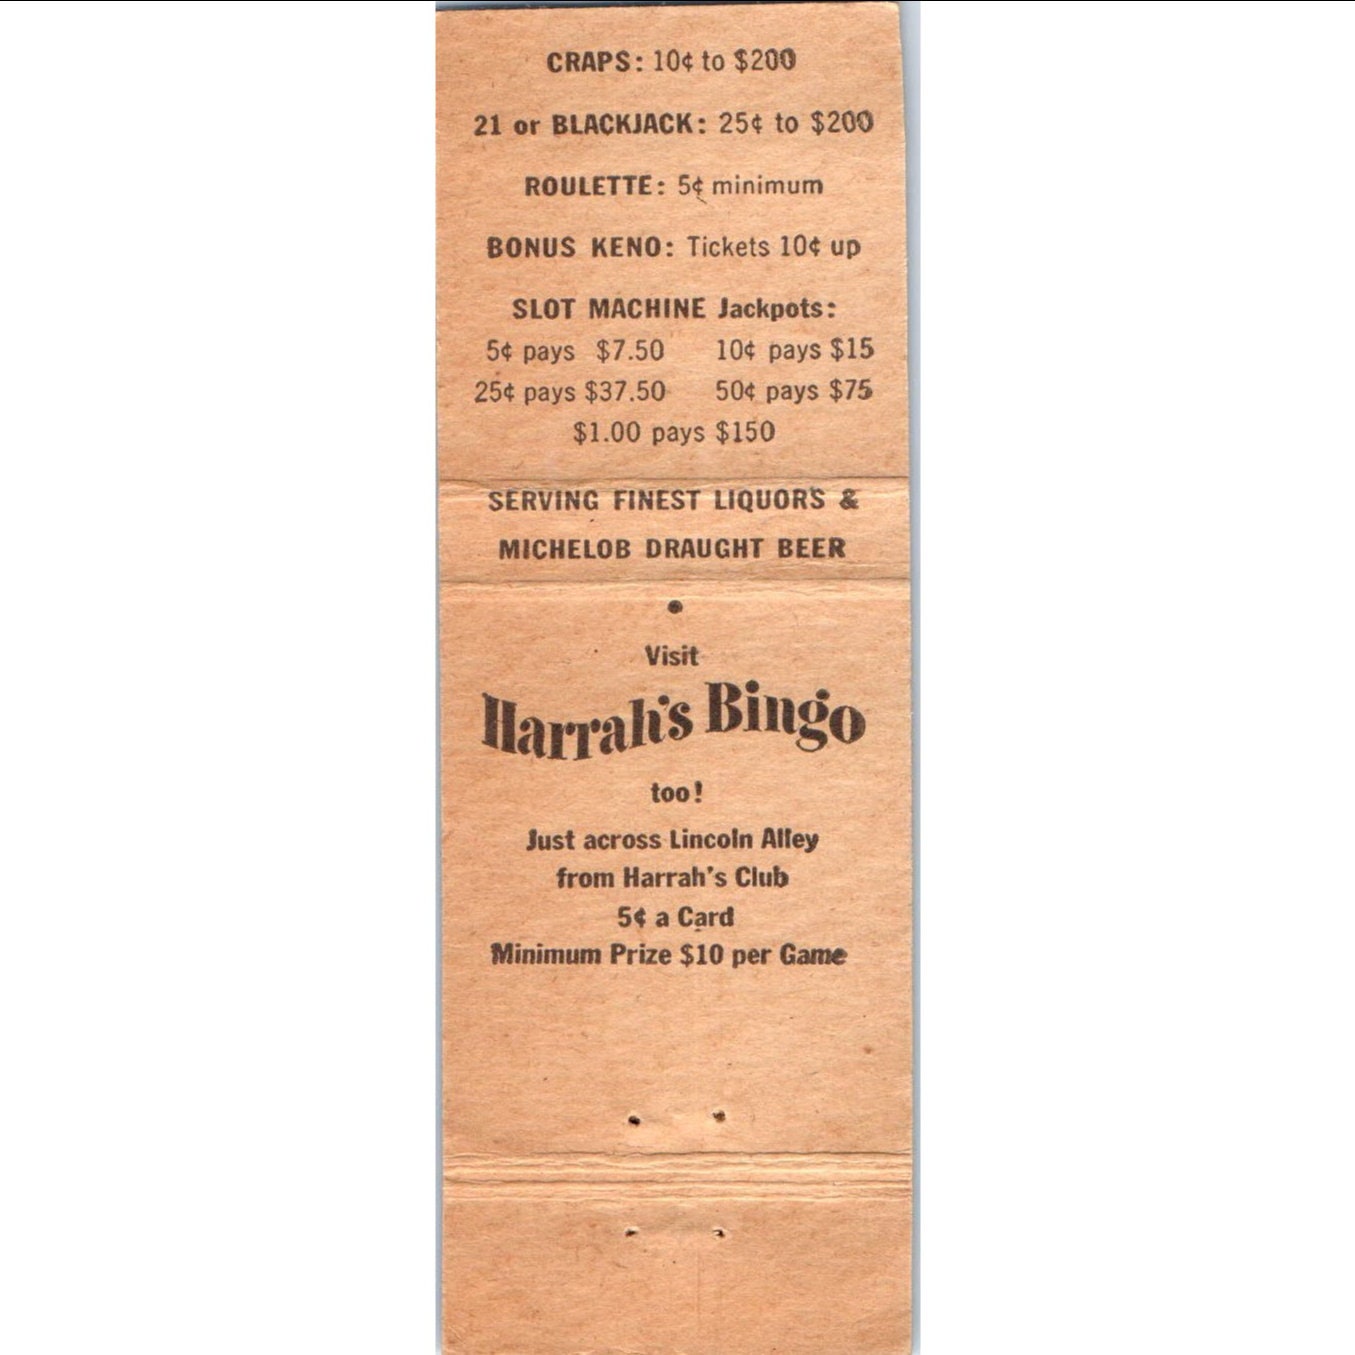 CRAPS: 10¢ to $200
21 or BLACKJACK: 25¢ to $200
ROULETTE: 5¢ minimum
BONUS KENO: Tickets 10¢ up
SLOT MACHINE Jackpots:
5¢ pays $7.50 10¢ pays $15
25¢ pays $37.50 50¢ pays $75
$1.00 pays $150
SERVING FINEST LIQUORS &
MICHELOB DRAUGHT BEER
Visit
Harrah's Bingo
too!
Just across Lincoln Alley
from Harrah's Club
5¢ a Card
Minimum Prize $10 per Game